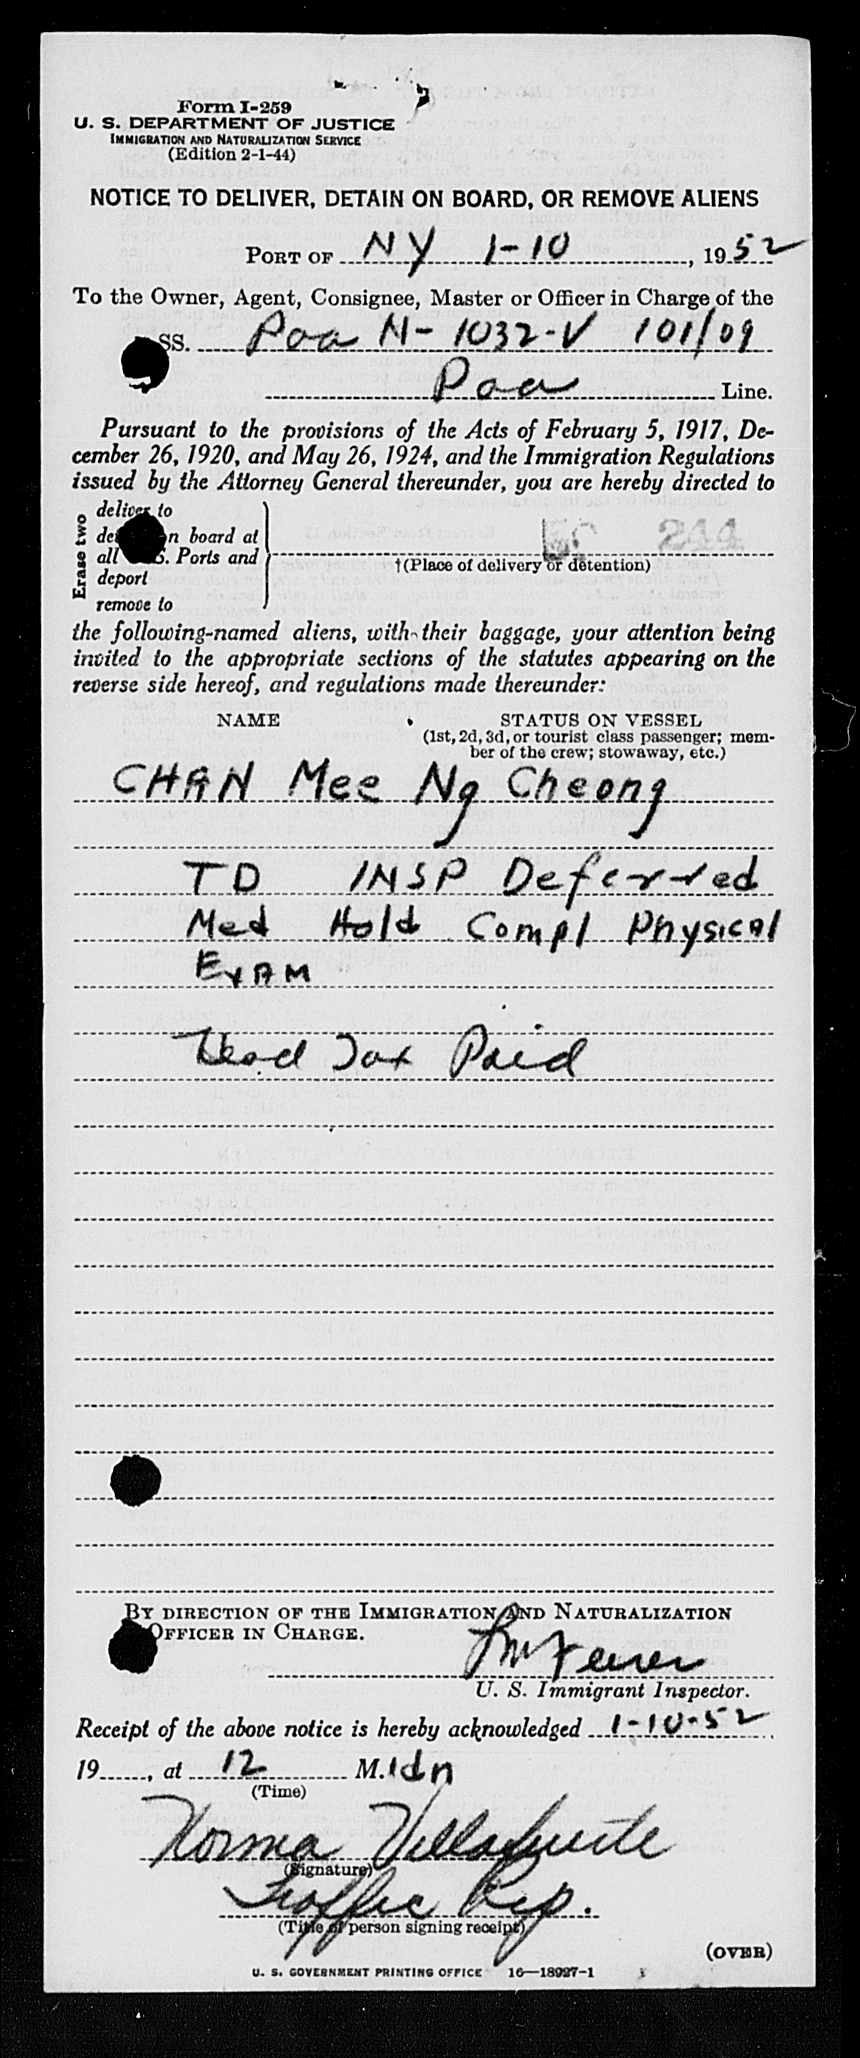 Form I-259
U. S. DEPARTMENT OF JUSTICE
IMMIGRATION AND NATURALIZATION SERVICE
(Edition 2-1-44)
NOTICE TO DELIVER, DETAIN ON BOARD, OR REMOVE ALIENS
PORT OF NY 1-10, 1952
To the Owner, Agent, Consignee, Master or Officer in Charge of the
SS. Paa N-1032-V 101/09
Paa Line.
Pursuant to the provisions of the Acts of February 5, 1917, De-
cember 26, 1920, and May 26, 1924, and the Immigration Regulations
issued by the Attorney General thereunder, you are hereby directed to
Erase two
deliver to
n board at
all S. Ports and
deport
remove to
244
†(Place of delivery or detention)
the following-named aliens, with their baggage, your attention being
invited to the appropriate sections of the statutes appearing on the
reverse side hereof, and regulations made thereunder:
NAME STATUS ON VESSEL
(1st, 2d, 3d, or tourist class passenger; mem-
ber of the crew; stowaway, etc.)
CHAN Mee Ng Cheong
TD INSP Deferred
Med Hold Compl Physical
EXAM
Head Tax Paid
BY DIRECTION OF THE IMMIGRATION AND NATURALIZATION
OFFICER IN CHARGE.
U. S. Immigrant Inspector.
Receipt of the above notice is hereby acknowledged 1-10-52
19, at 12 M. idn
(Time)
Norma Villafuerte
(Signature)
Traffic Rep.
(Title of person signing receipt)
(OVER)
U. S. GOVERNMENT PRINTING OFFICE 16—18927-1